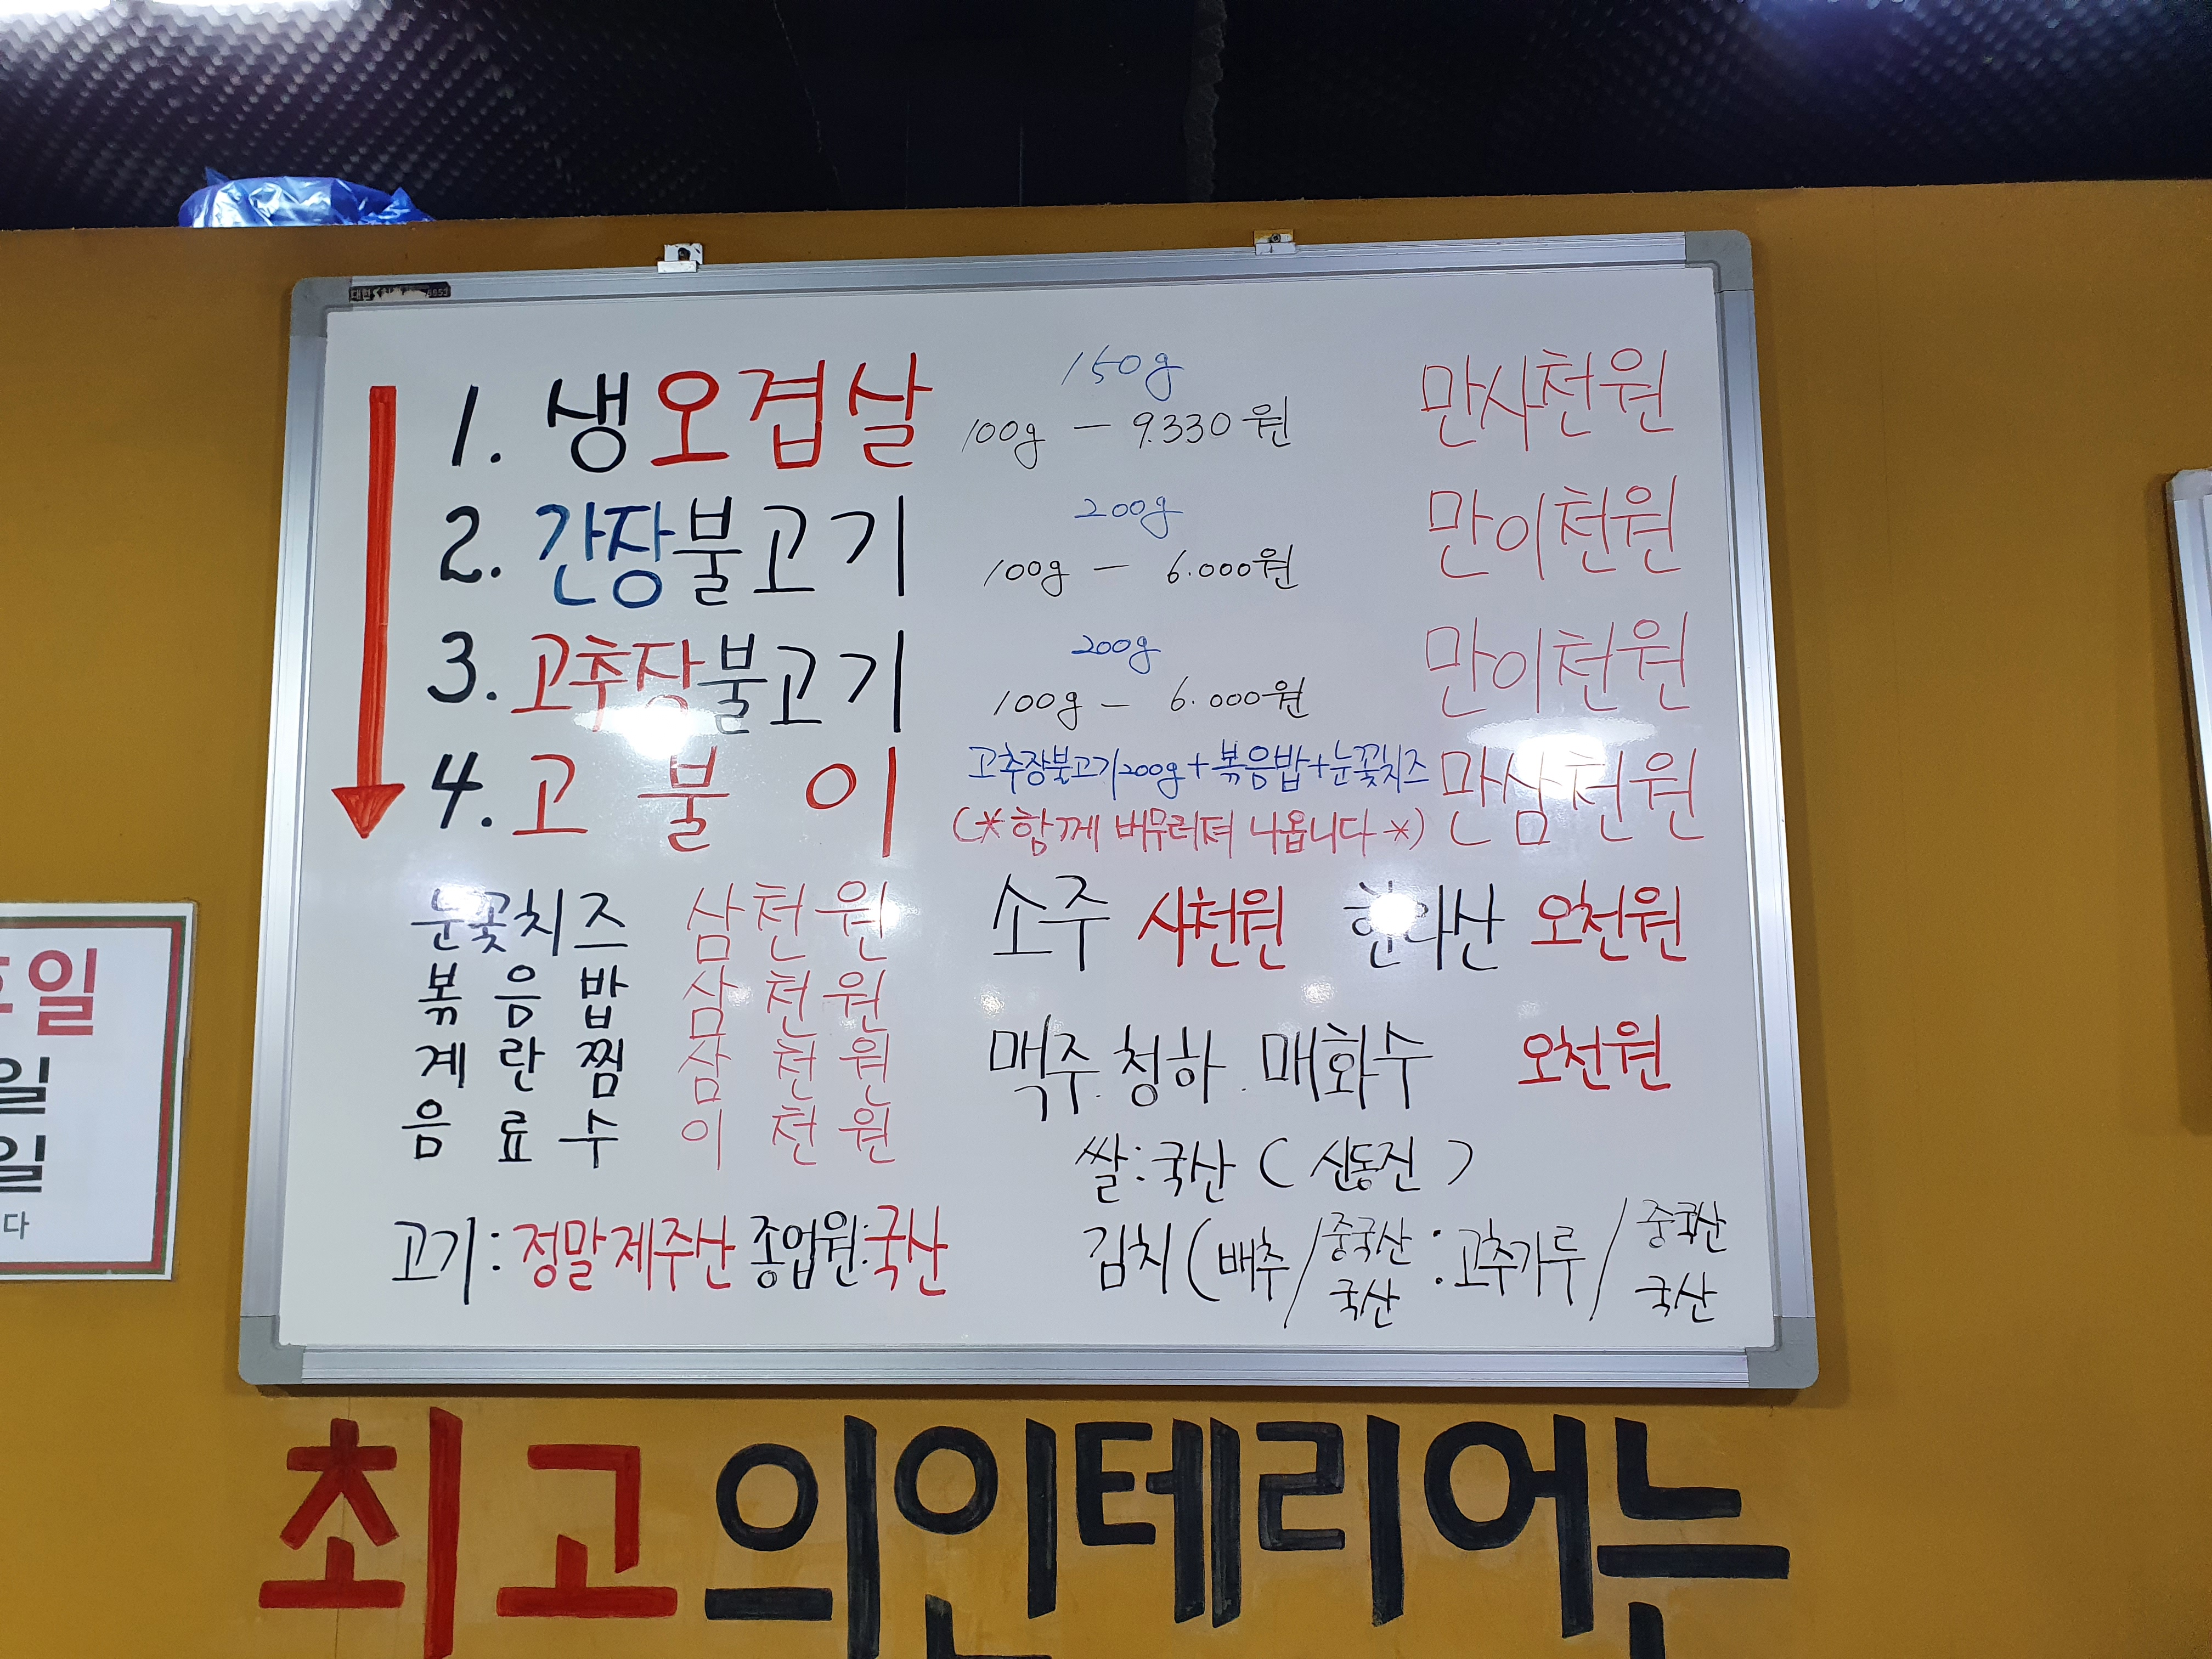 1. 생오겹살 150g 만사천원
100g - 9.330원
2. 간장불고기 200g 만이천원
100g - 6.000원
3. 고추장불고기 200g 만이천원
100g - 6.000원
4. 고불이 고추장불고기200g+볶음밥+눈꽃치즈 만삼천원
(*함께 버무려져 나옵니다*)
눈꽃치즈 삼천원
볶음밥 삼천원
계란찜 삼천원
음료수 이천원
소주 사천원 한라산 오천원
맥주.청하.매화수 오천원
쌀:국산(신동진)
고기:정말제주산 종업원:국산
김치(배추/중국산 국산:고추가루/중국산 국산
일
일
일
다
최고의인테리어는